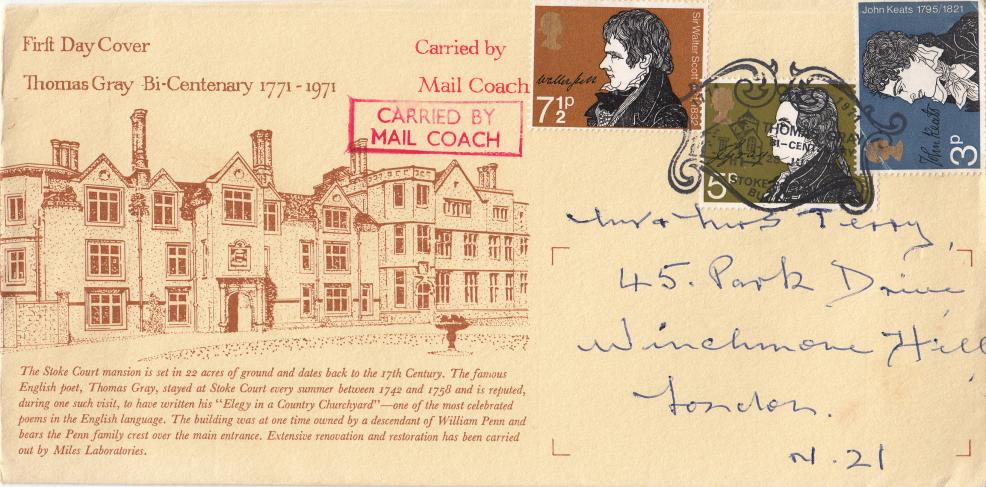 First Day Cover
Thomas Gray Bi-Centenary 1771-1971
Carried by
Mail Coach
CARRIED BY
MAIL COACH
Sir Walter Scott 1832
Walter Scott
7½p
THOMAS GRAY
BI-CENT
STOKE
5p
John Keats 1795/1821
John Keats
3p
The Stoke Court mansion is set in 22 acres of ground and dates back to the 17th Century. The famous
English poet, Thomas Gray, stayed at Stoke Court every summer between 1742 and 1758 and is reputed,
during one such visit, to have written his "Elegy in a Country Churchyard"—one of the most celebrated
poems in the English language. The building was at one time owned by a descendant of William Penn and
bears the Penn family crest over the main entrance. Extensive renovation and restoration has been carried
out by Miles Laboratories.
Mr & Mrs Terry,
45. Park Drive
Winchmore Hill
London.
N. 21